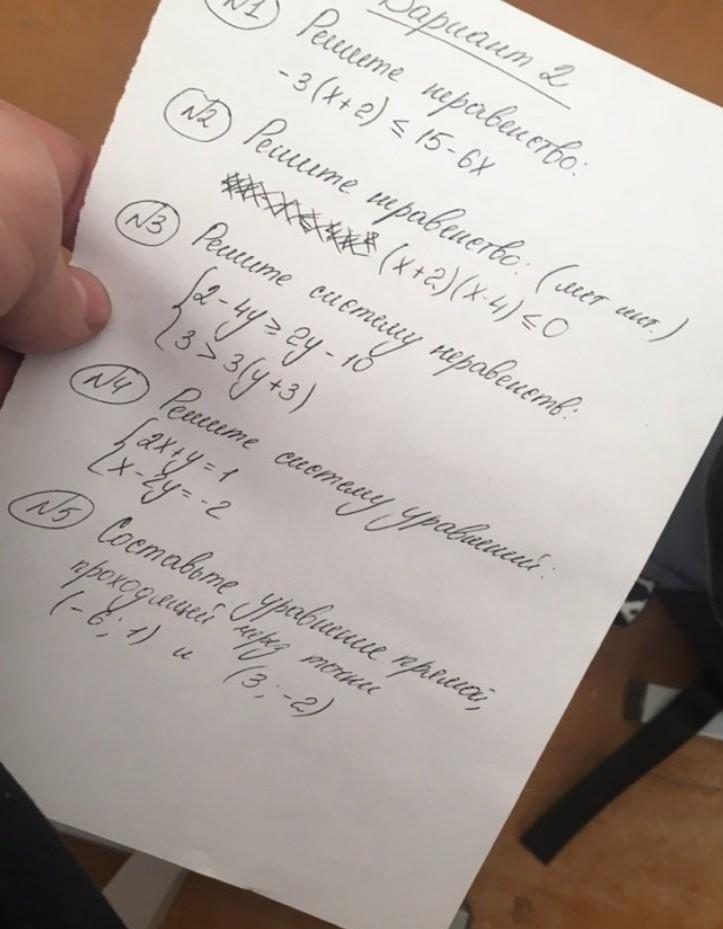 Вариант 2
№1 Решите неравенство:
-3(x+2) ≤ 15-6x
№2 Решите неравенство: (мет инт.)
(x+2)(x-4) ≤ 0
№3 Решите систему неравенств:
2-4y ≥ 2y-10
3 > 3(y+3)
№4 Решите систему уравнений:
2x+y=1
x-2y=-2
№5 Составьте уравнение прямой,
проходящей через точки
(-6; 1) и (3; -2)